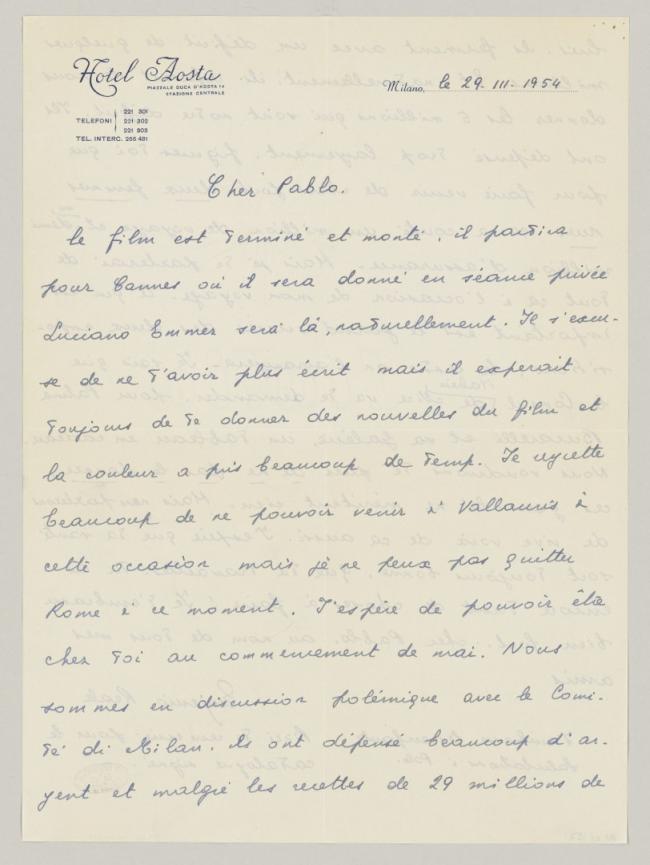 Hotel Aosta
PIAZZALE DUCA D'AOSTA 14
STAZIONE CENTRALE
TELEFONI 221 301
221 302
221 303
TEL. INTERC. 266 481
Milano, le 29-III-1954
Cher Pablo.
le film est terminé et monté. il partira
pour Cannes où il sera donné en séance privée
Luciano Emmer sera là, naturellement. Il s'excu-
se de ne t'avoir plus écrit mais il experait
toujours de te donner des nouvelles du film et
la couleur a pris beaucoup de temp. Je regrette
beaucoup de ne pouvoir venir à Vallauris à
cette occasion mais je ne peux pas quitter
Rome à ce moment. J'espère de pouvoir être
chez toi au commencement de mai. Nous
sommes en discussion polémique avec le Comi-
té di Milan. ils ont dépensé beaucoup d'ar-
gent et malgré les recettes de 29 millions de